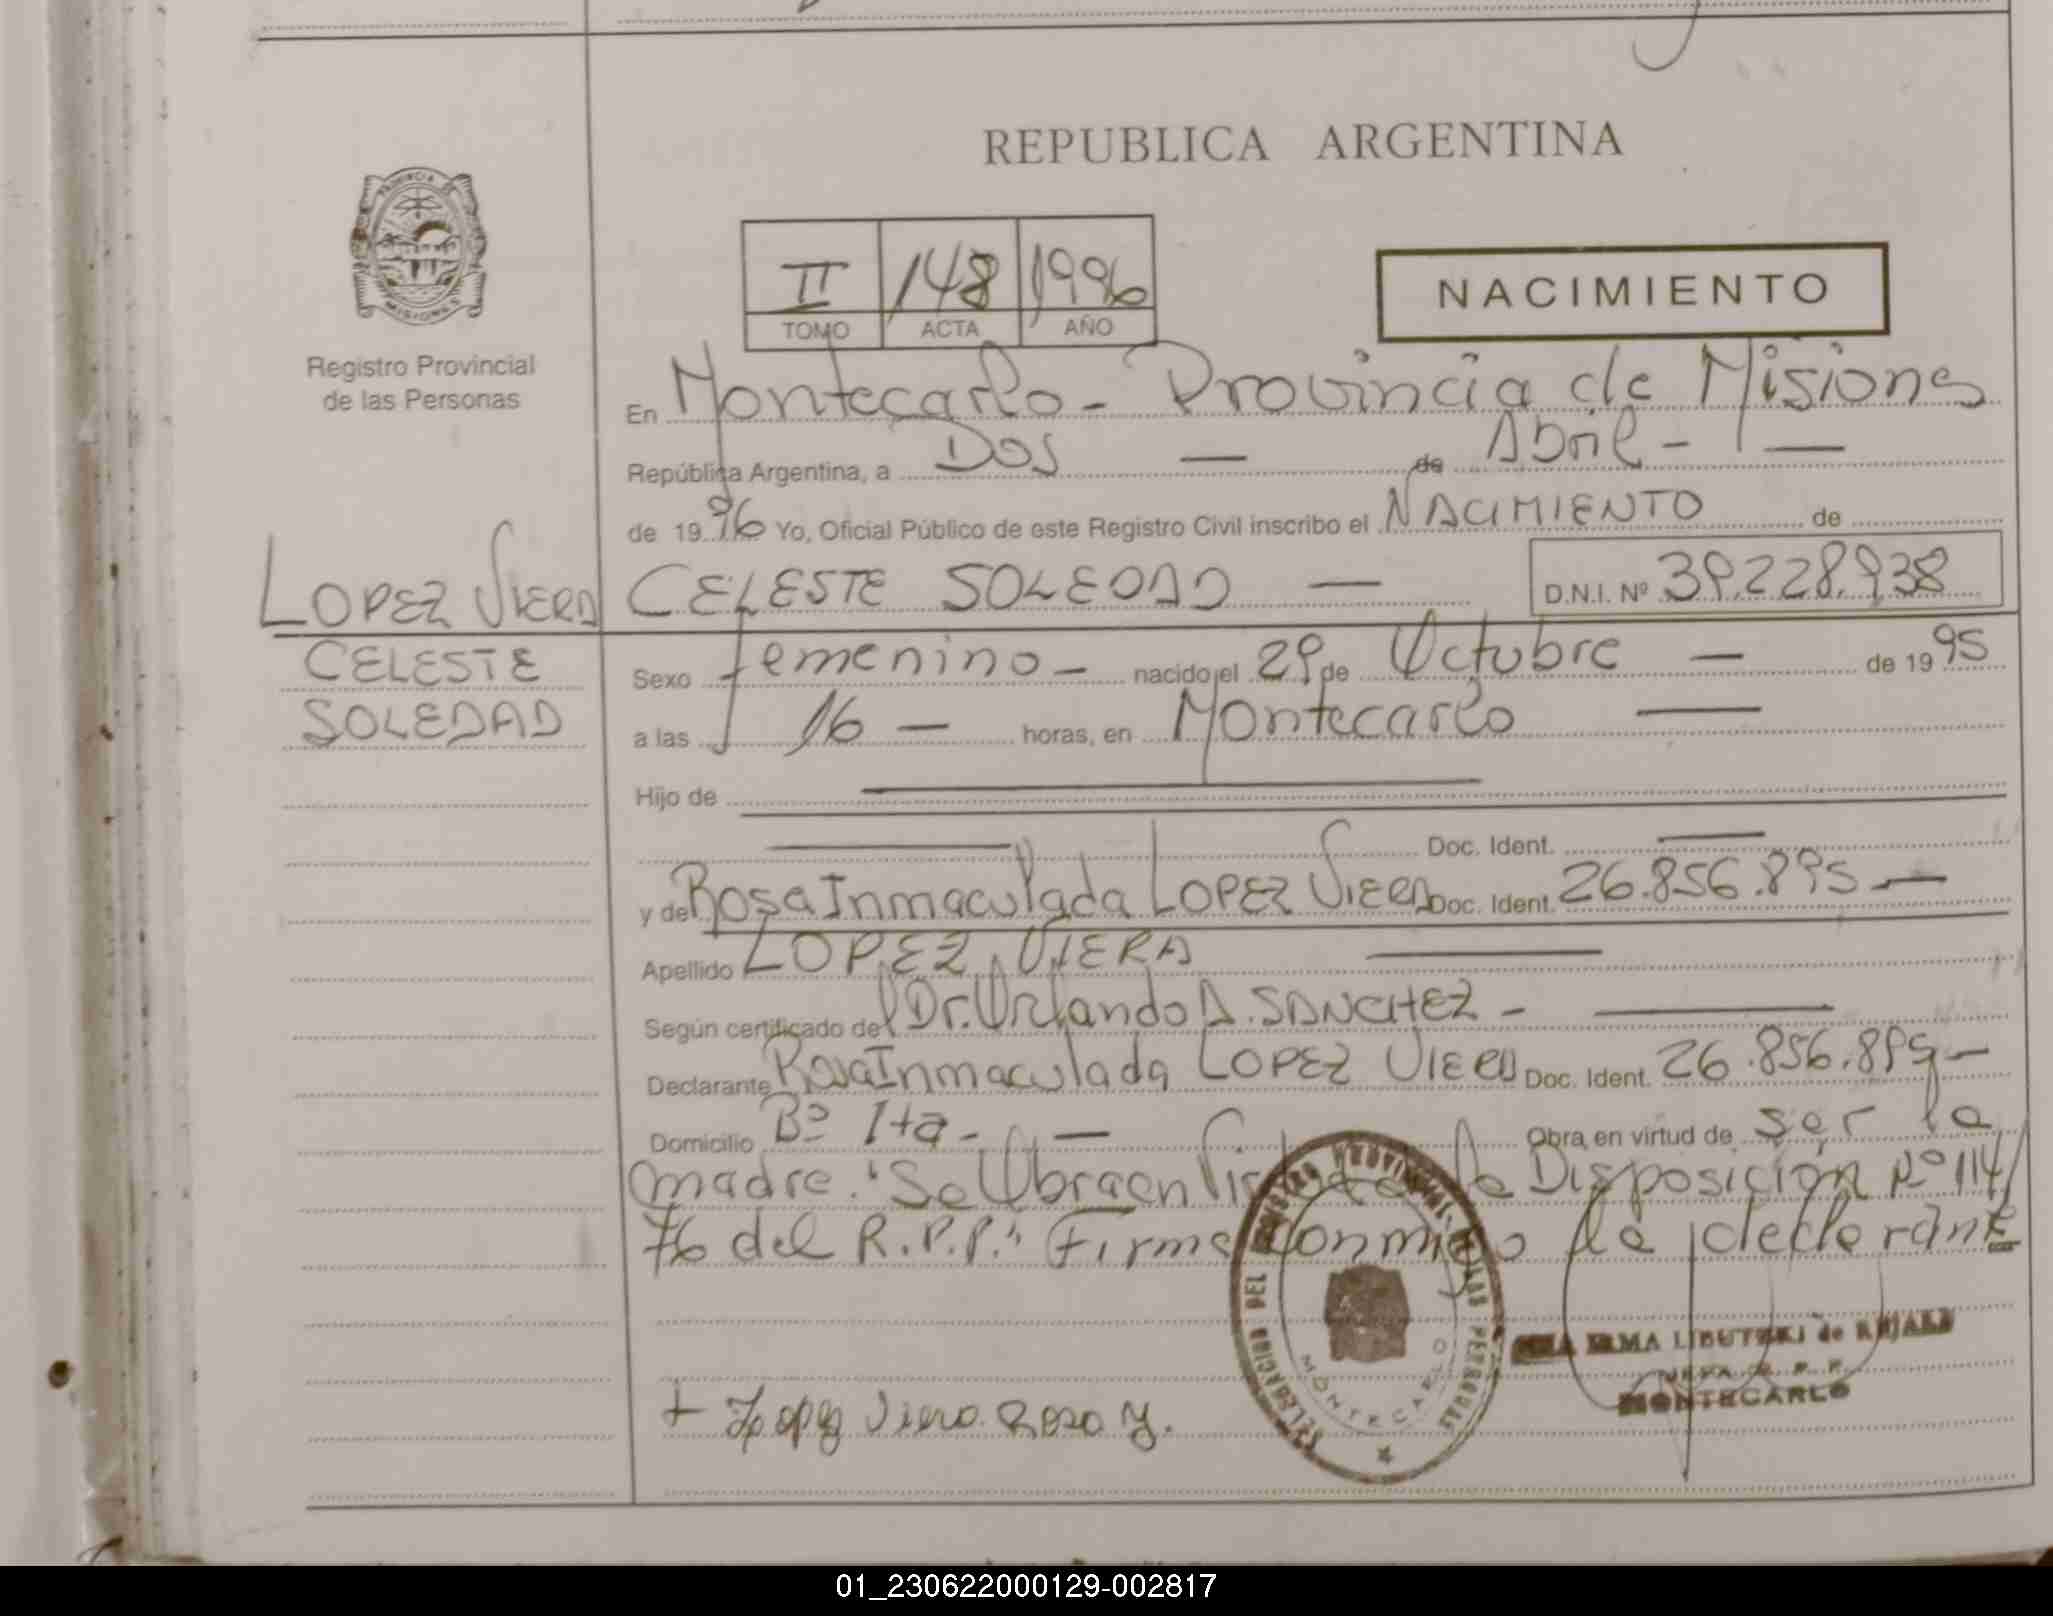 REPUBLICA ARGENTINA
PROVINCIA DE
MISIONES
Registro Provincial
de las Personas
II 148 1996
TOMO ACTA AÑO
NACIMIENTO
En Montecarlo - Provincia de Misiones
República Argentina, a Dos — de Abril - —
de 19 96 Yo, Oficial Público de este Registro Civil inscribo el NACIMIENTO de
LOPEZ VIERA
CELESTE
SOLEDAD
CELESTE SOLEDAD — D.N.I. Nº 39.228.938
Sexo femenino - nacido el 29 de Octubre — de 19 95
a las 16 — horas, en Montecarlo —
Hijo de —
— Doc. Ident. —
y de Rosa Inmaculada LOPEZ VIERA Doc. Ident. 26.856.895 —
Apellido LOPEZ VIERA —
Según certificado del Dr. Orlando A. SANCHEZ - —
Declarante Rosa Inmaculada LOPEZ VIERA Doc. Ident. 26.856.895 —
Domicilio Bº Ita - — Obra en virtud de ser la
madre. "Se Obra en Virtud de la Disposición Nº 114/
76 del R.P.P." Firma conmigo la declarante
DELEGACION DEL REGISTRO PROVINCIAL DE LAS PERSONAS
MONTECARLO
IRMA LIBUTZKI de
JEFA R. P. P.
MONTECARLO
+ Lopez Viera Rosa Y.
01_230622000129-002817